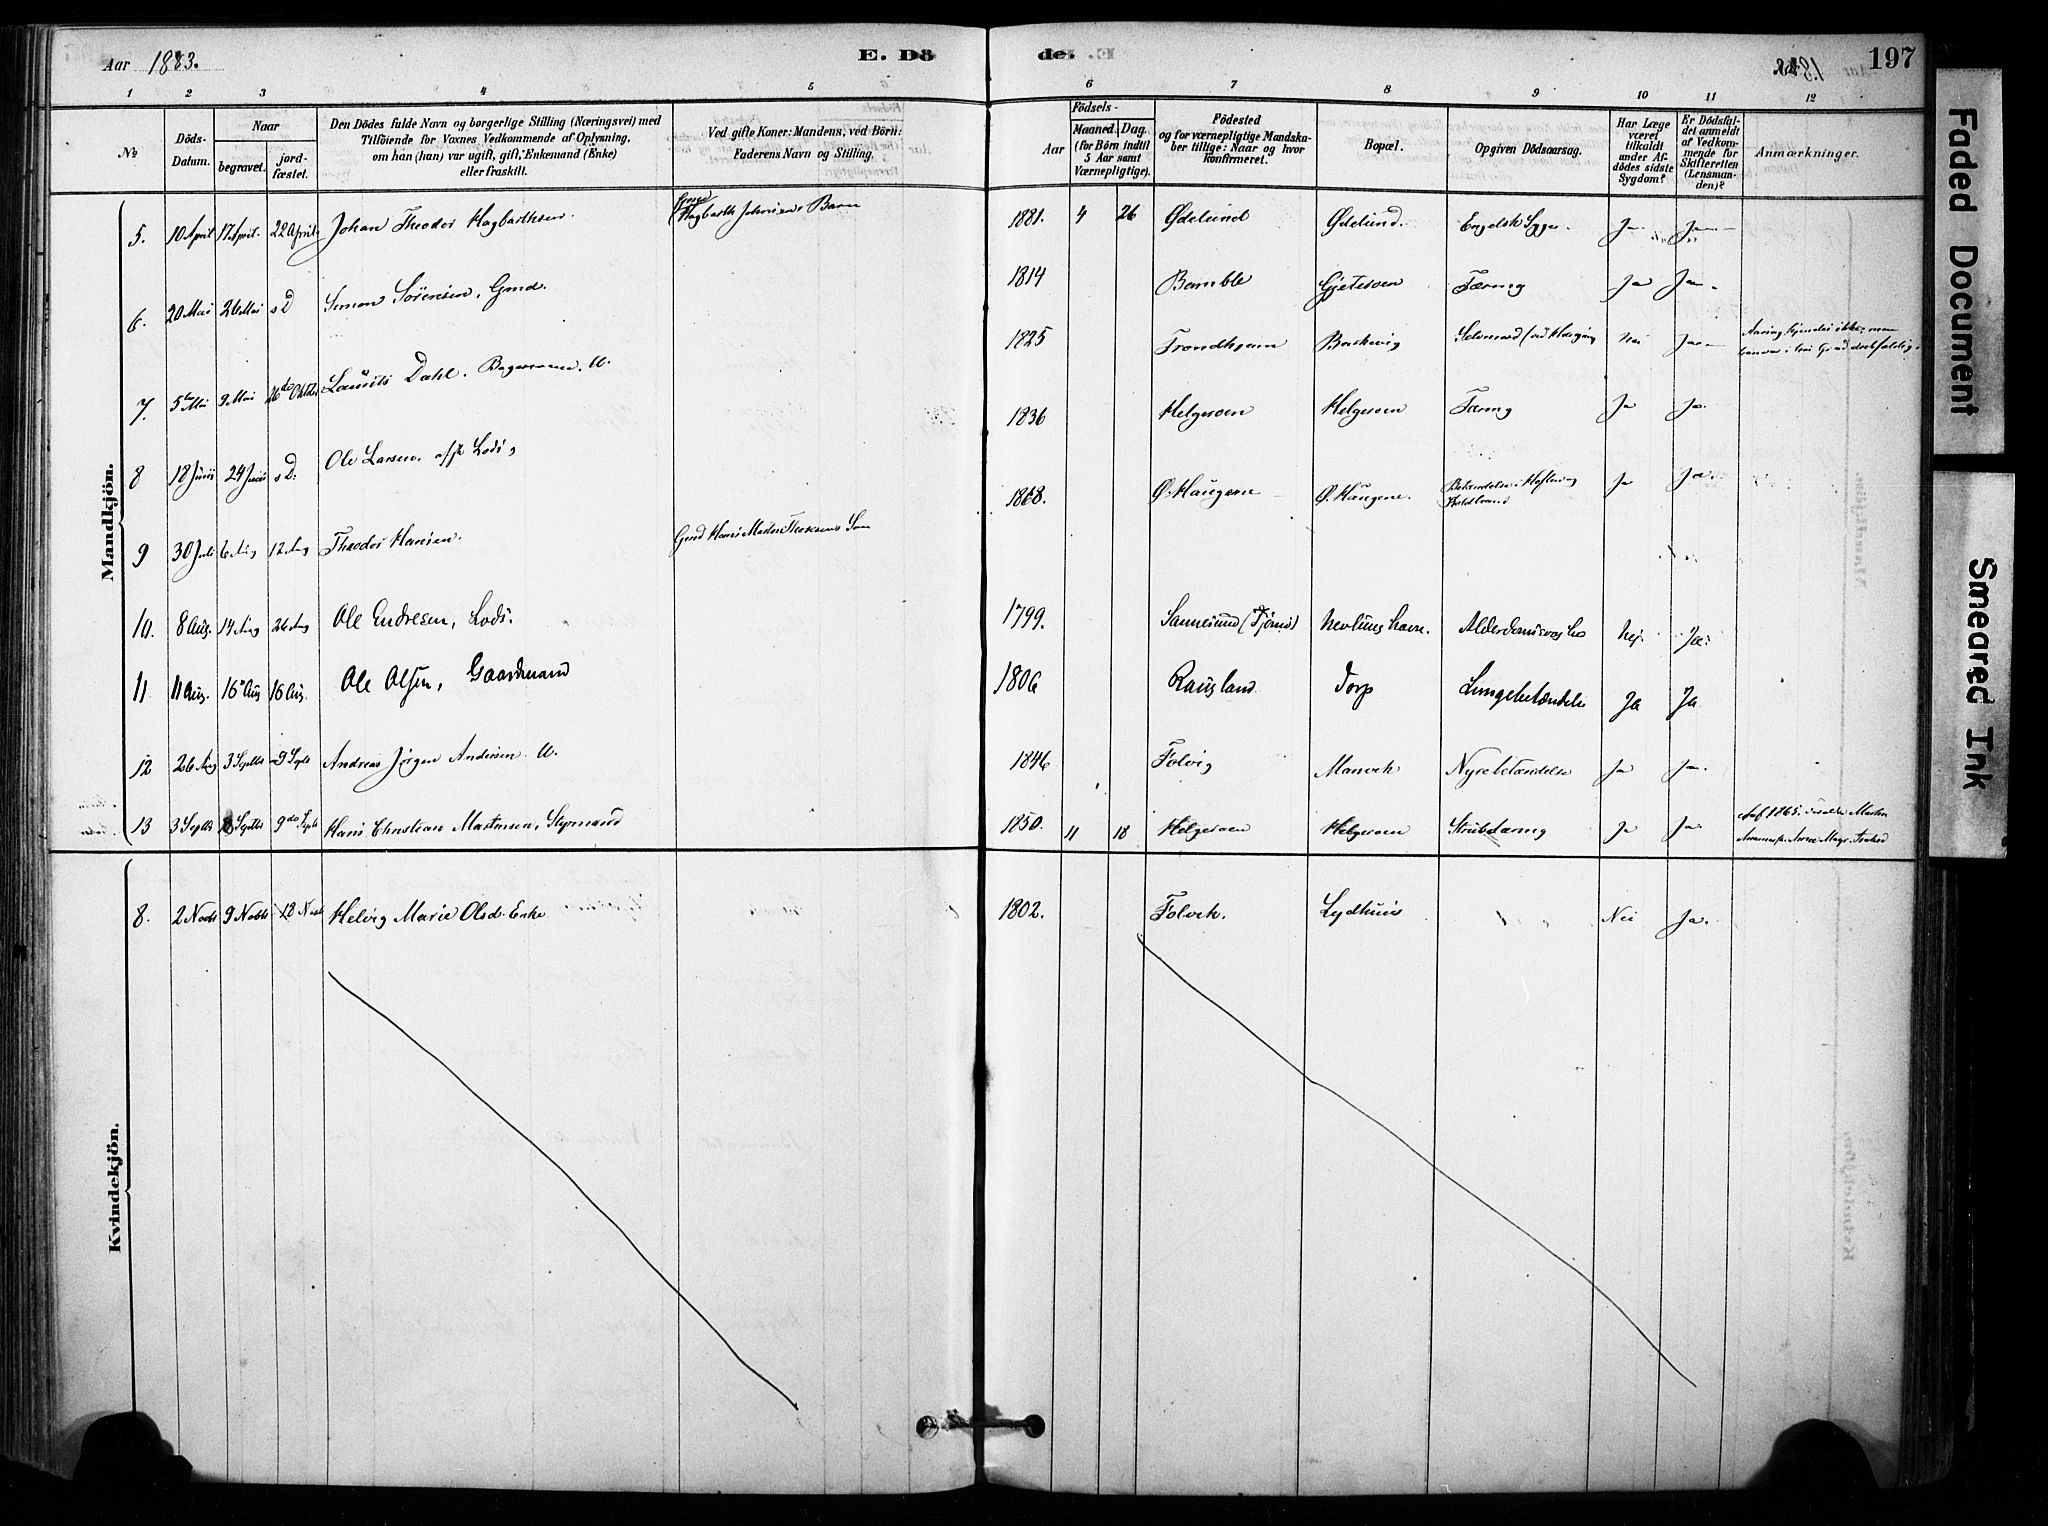 Aar 1883.
E. Dö
de.
197
1 2 3 4 5
6 7 8 9 10 11 12
No
Döds-Datum.
Naar
begravet.
jord-fæstet.
Den Dödes fulde Navn og borgerlige Stilling (Næringsvei) med
Tilföiende for Voxnes Vedkommende af Oplysning,
om han (hun) var ugift, gift, Enkemand (Enke)
eller fraskilt.
Ved gifte Koner: Mandens, ved Börn:
Faderens Navn og Stilling.
Födsels-
Aar
Maaned. Dag.
(for Börn indtil
5 Aar samt
Værnepligtige).
Födested
og for værnepligtige Mandska-
ber tillige: Naar og hvor
konfirmeret.
Bopæl.
Opgiven Dödsaarsag.
Har Læge
været
tilkaldt
under Af-
dödes sidste
Sygdom?
Er Dödsfal-
det anmeldt
af Vedkom-
mende for
Skifteretten
(Lensman-
den)?
Anmærkninger.
Mandkjön.
5. 10 April 17 April. 22 April. Johan Theodor Hagbarthsen. Hagbarth Johnsens Barn 1881. 4 26 Ødelund Ødelund. Engelsk Syge. Ja Ja
6. 20 Mai 26 Mai s D Simon Sörensen, Gmd. 1814 Bamble Gjeteroen Tæring Ja Ja.
7. 5te Mai 9 Mai 26de Laurits Dahl. U. 1825 Trondhjem Barkevig Selvmord Nei Ja
8 18 Juni 24 Juni s D. Ole Larsen. Lods, 1836 Helgeroen Helgeroen Tæring Ja Ja.
9 30 Juli 6 Aug 12 Aug Theodor Hansen. Gmd Hans Martin Søn 1868. Ø. Haugene Ø. Haugene. Betændelse i Hofteen Ja Ja.
10. 8 Aug. 14 Aug 26 Aug Ole Endresen, Lods. 1799. Sannesund (Tjömö) Nevlunghavn. Nej. Ja.
11 11 Aug. 16 Aug 16 Aug. Ole Olsen, Gaardmand 1806 Rausland Torp Lungebetændelse Ja Ja
12 26 Aug 3 Septbr 9 Septb Andreas Jörgen Andersen. U. 1846 Folvig Manvik Nyrebetændelse Ja Ja.
13 3 Septbr 8 Septbr 9de Septb Hans Christian Martinsen, Styrmand 1850. 11 18 Helgeroen Helgeroen Strubetæring Ja Ja.
Kvindekjön.
8. 2 Novb 9 Novbr 18 Novb Helvig Marie Olsd. Enke 1802. Folvik. Lydhuus Nei Ja.
Faded Document
Smeared Ink